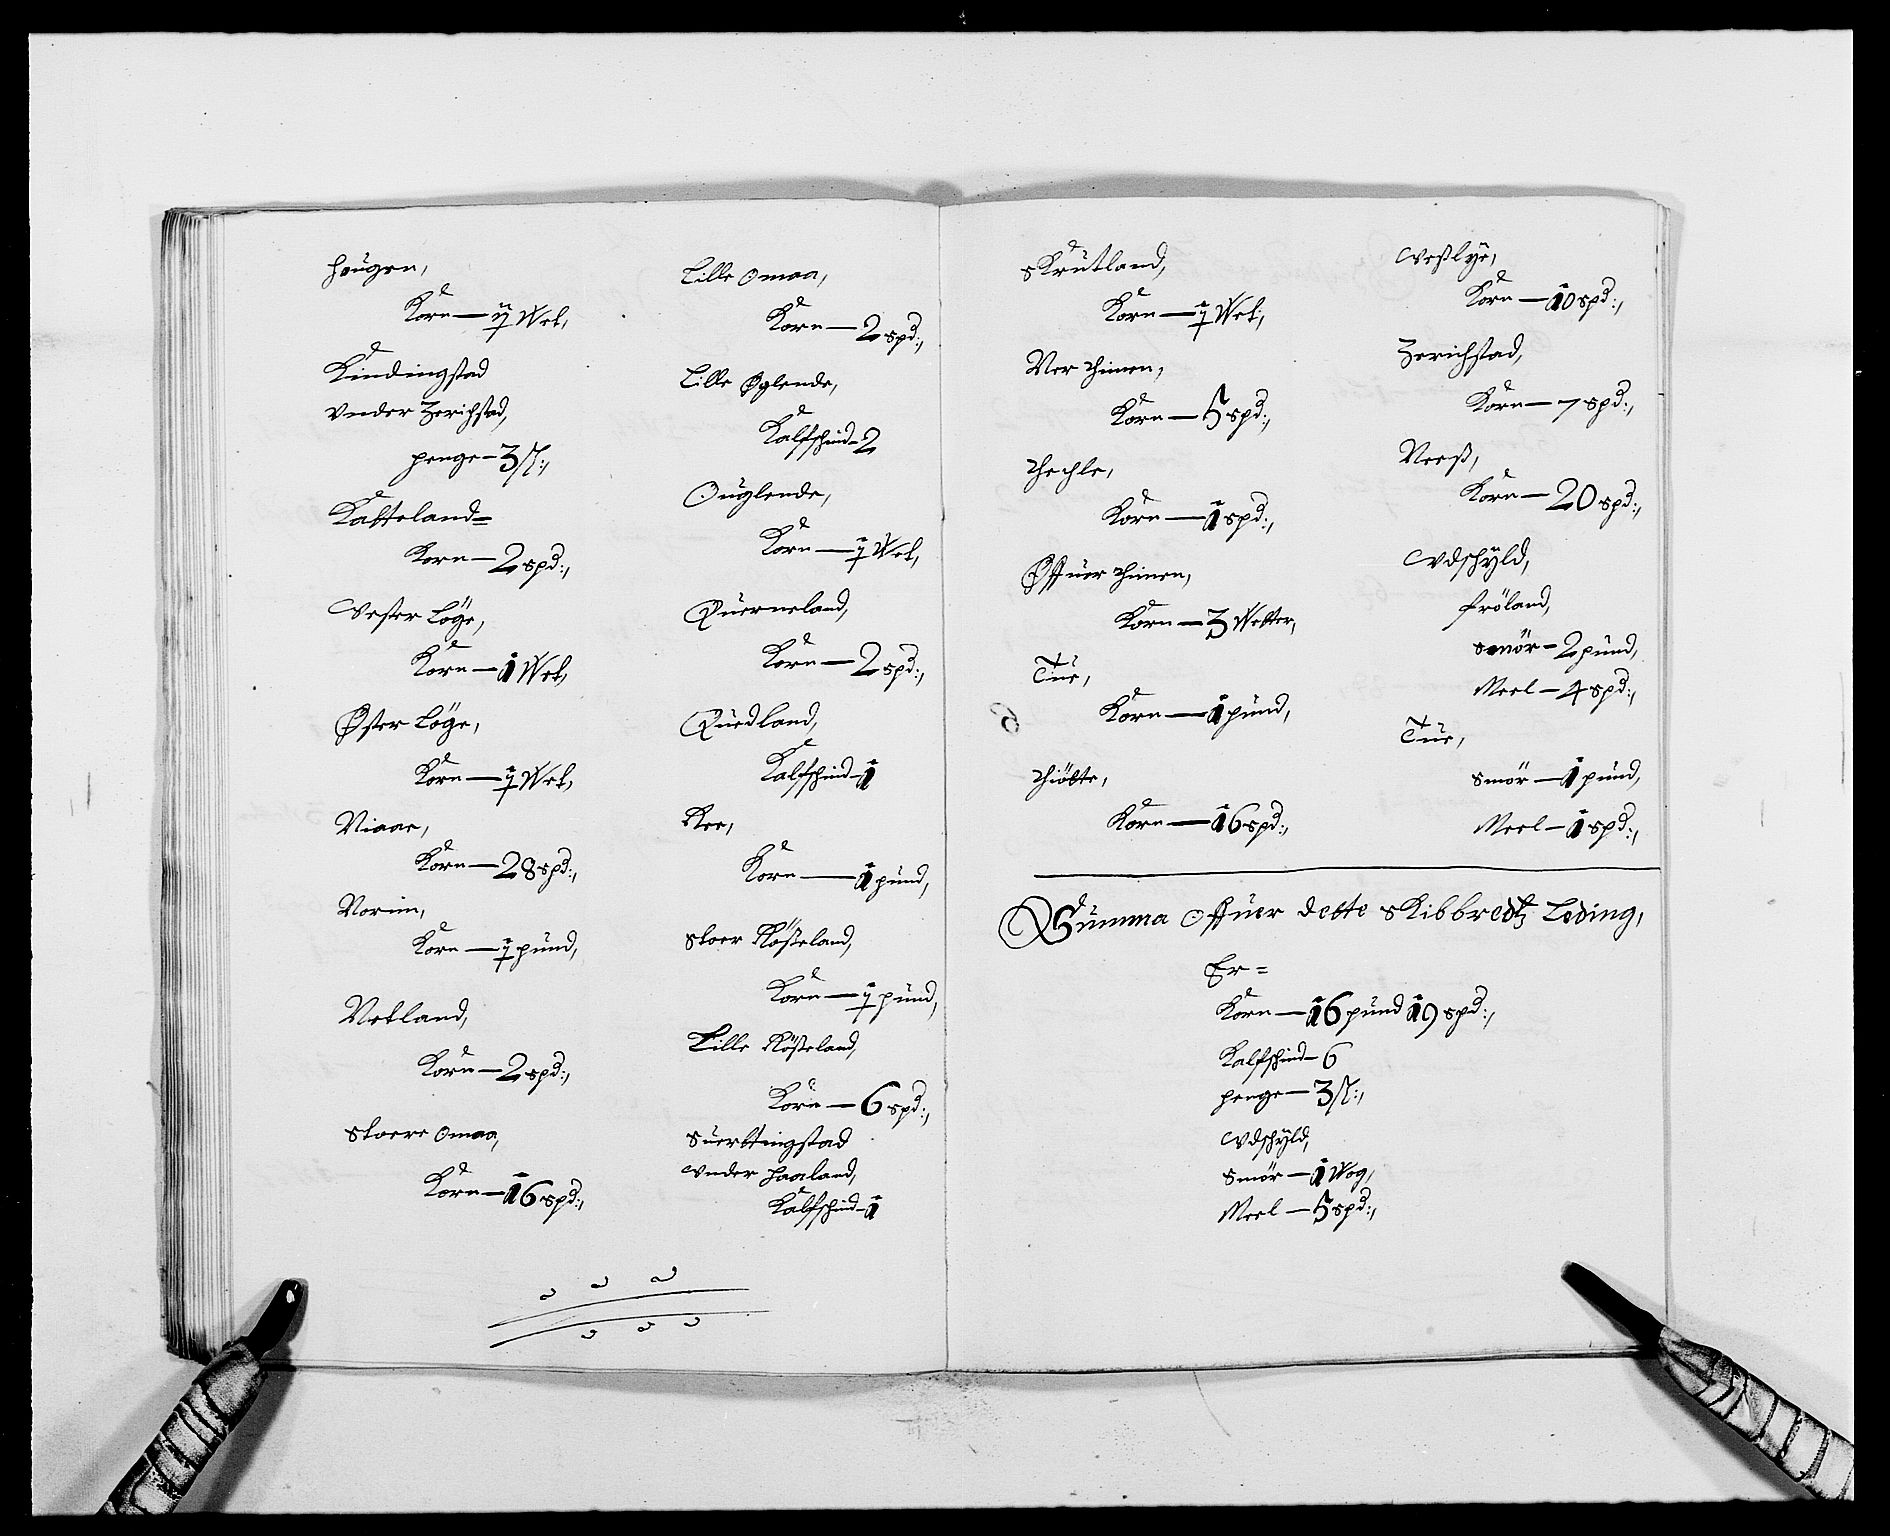 Haugen,
Korn — ½ Wet,
Kindingstad
Vnder Zerichstad,
penge — 3 ß:,
Katteland=
Korn — 2 spd:,
Vester Löge,
Korn — 1 Wet,
Øster Löge,
Korn — ½ Wet,
Niaae,
Korn — 28 spd:,
Norim,
Korn — ½ pund,
Netland,
Korn — 2 spd:,
Stoere Omaa,
Korn — 16 spd:,
Lille Omaa,
Korn — 2 spd:,
Lille Øglende,
Kalfschind — 2
Ouglende,
Korn — ½ Wet,
Querneland,
Korn — 2 spd:,
Quedland,
Kalfschind — 1
Ree,
Korn — 1 pund,
Stoer Rösseland,
Korn — ½ pund,
Lille Rösseland,
Korn — 6 spd:,
Suerttingstad
Vnder Haaland,
Kalfschind — 1
Skrutland,
Korn — ½ Wet,
Ner Thimen,
Korn — 5 spd:,
Thechle,
Korn — 1 spd:,
Øffuer Thimen,
Korn — 3 Wetter,
Tue,
Korn — 1 pund,
Thiötte,
Korn — 16 spd:,
Vesslye,
Korn — 10 spd:,
Zerichstad,
Korn — 7 spd:,
Neess,
Korn — 20 spd:,
Vdschyld,
Fröland,
Smör — 2 pund,
Meel — 4 spd:,
Tue,
Smör — 1 pund,
Meel — 1 spd:,
Summa Offuer dette Skibbredtz Leding,
Er=
Korn — 16 pund 19 spd:,
Kalfschind — 6
penge — 3 ß:,
Vdschyld,
Smör — 1 Wog,
Meel — 5 spd:,